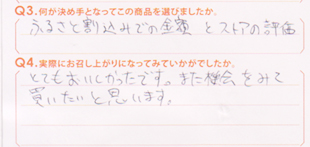 Q3.何が決め手となってこの商品を選びましたか。
ふるさと割込みでの金額 とストアの評価
Q4.実際にお召し上がりになってみていかがでしたか。
とてもおいしかったです。また機会をみて
買いたいと思います。